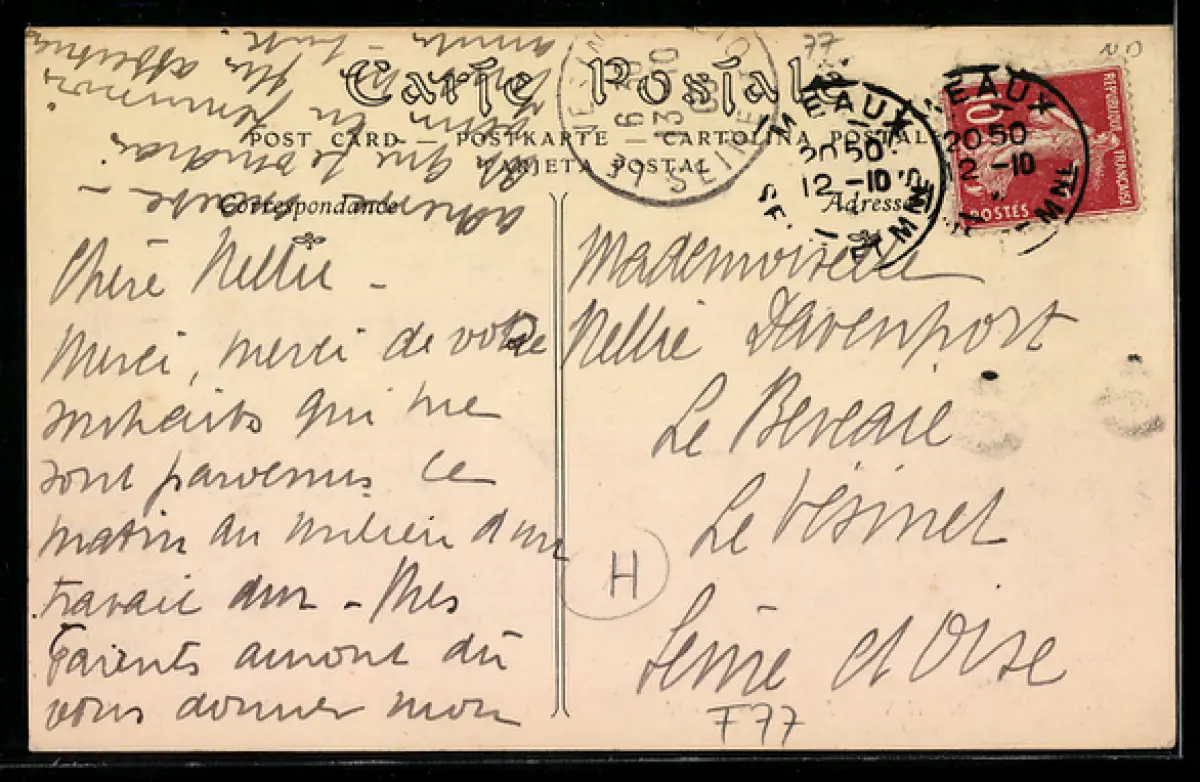 Carte Postale
POST CARD — POSTKARTE — CARTOLINA POSTALE
TARJETA POSTAL
Correspondance
Adresse
77
ND
MEAUX
20 50
12 -10
MEAUX
20 50
12 -10
10
REPUBLIQUE FRANÇAISE
POSTES
LE VÉSINET
6
13
SEINE
Chère Nellie -
Merci, merci de votre
souhaits qui me
sont parvenus ce
matin au milieu d'un
travail dur - Mes
Parents auront dû
vous donner mon
adresse -
Mademoiselle
Nellie Davenport
Le Vésinet
Seine et Oise
H
F77